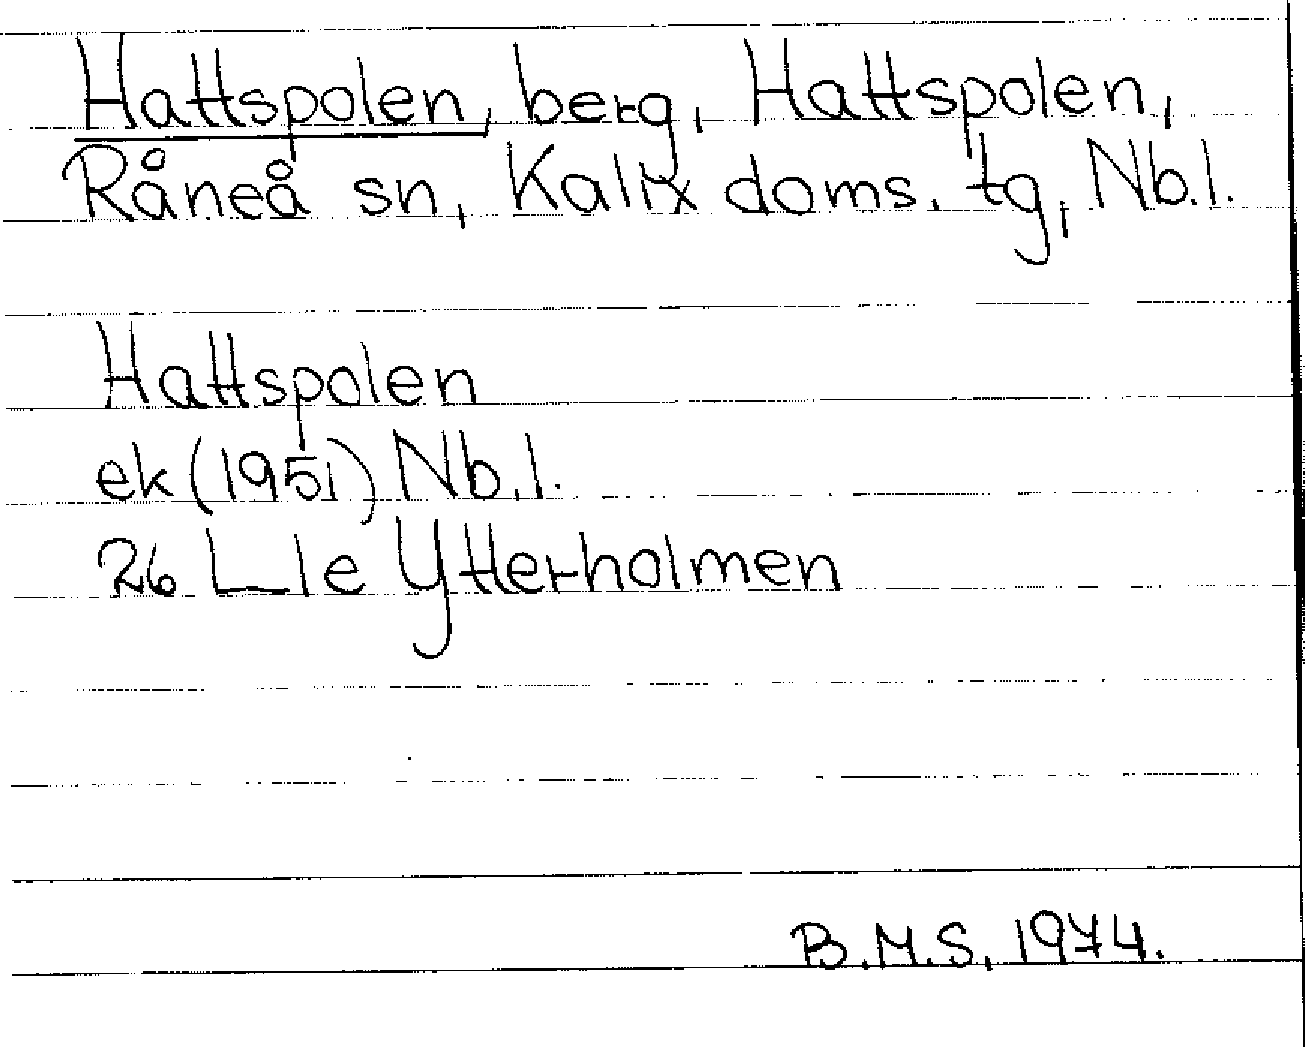 Hattspolen, berg, Hattspolen,
Råneå sn, Kalix doms. tg, Nb.l.
Hattspolen
ek (1951) Nb.l.
26 L 1e Ytterholmen
B.M.S, 1974.